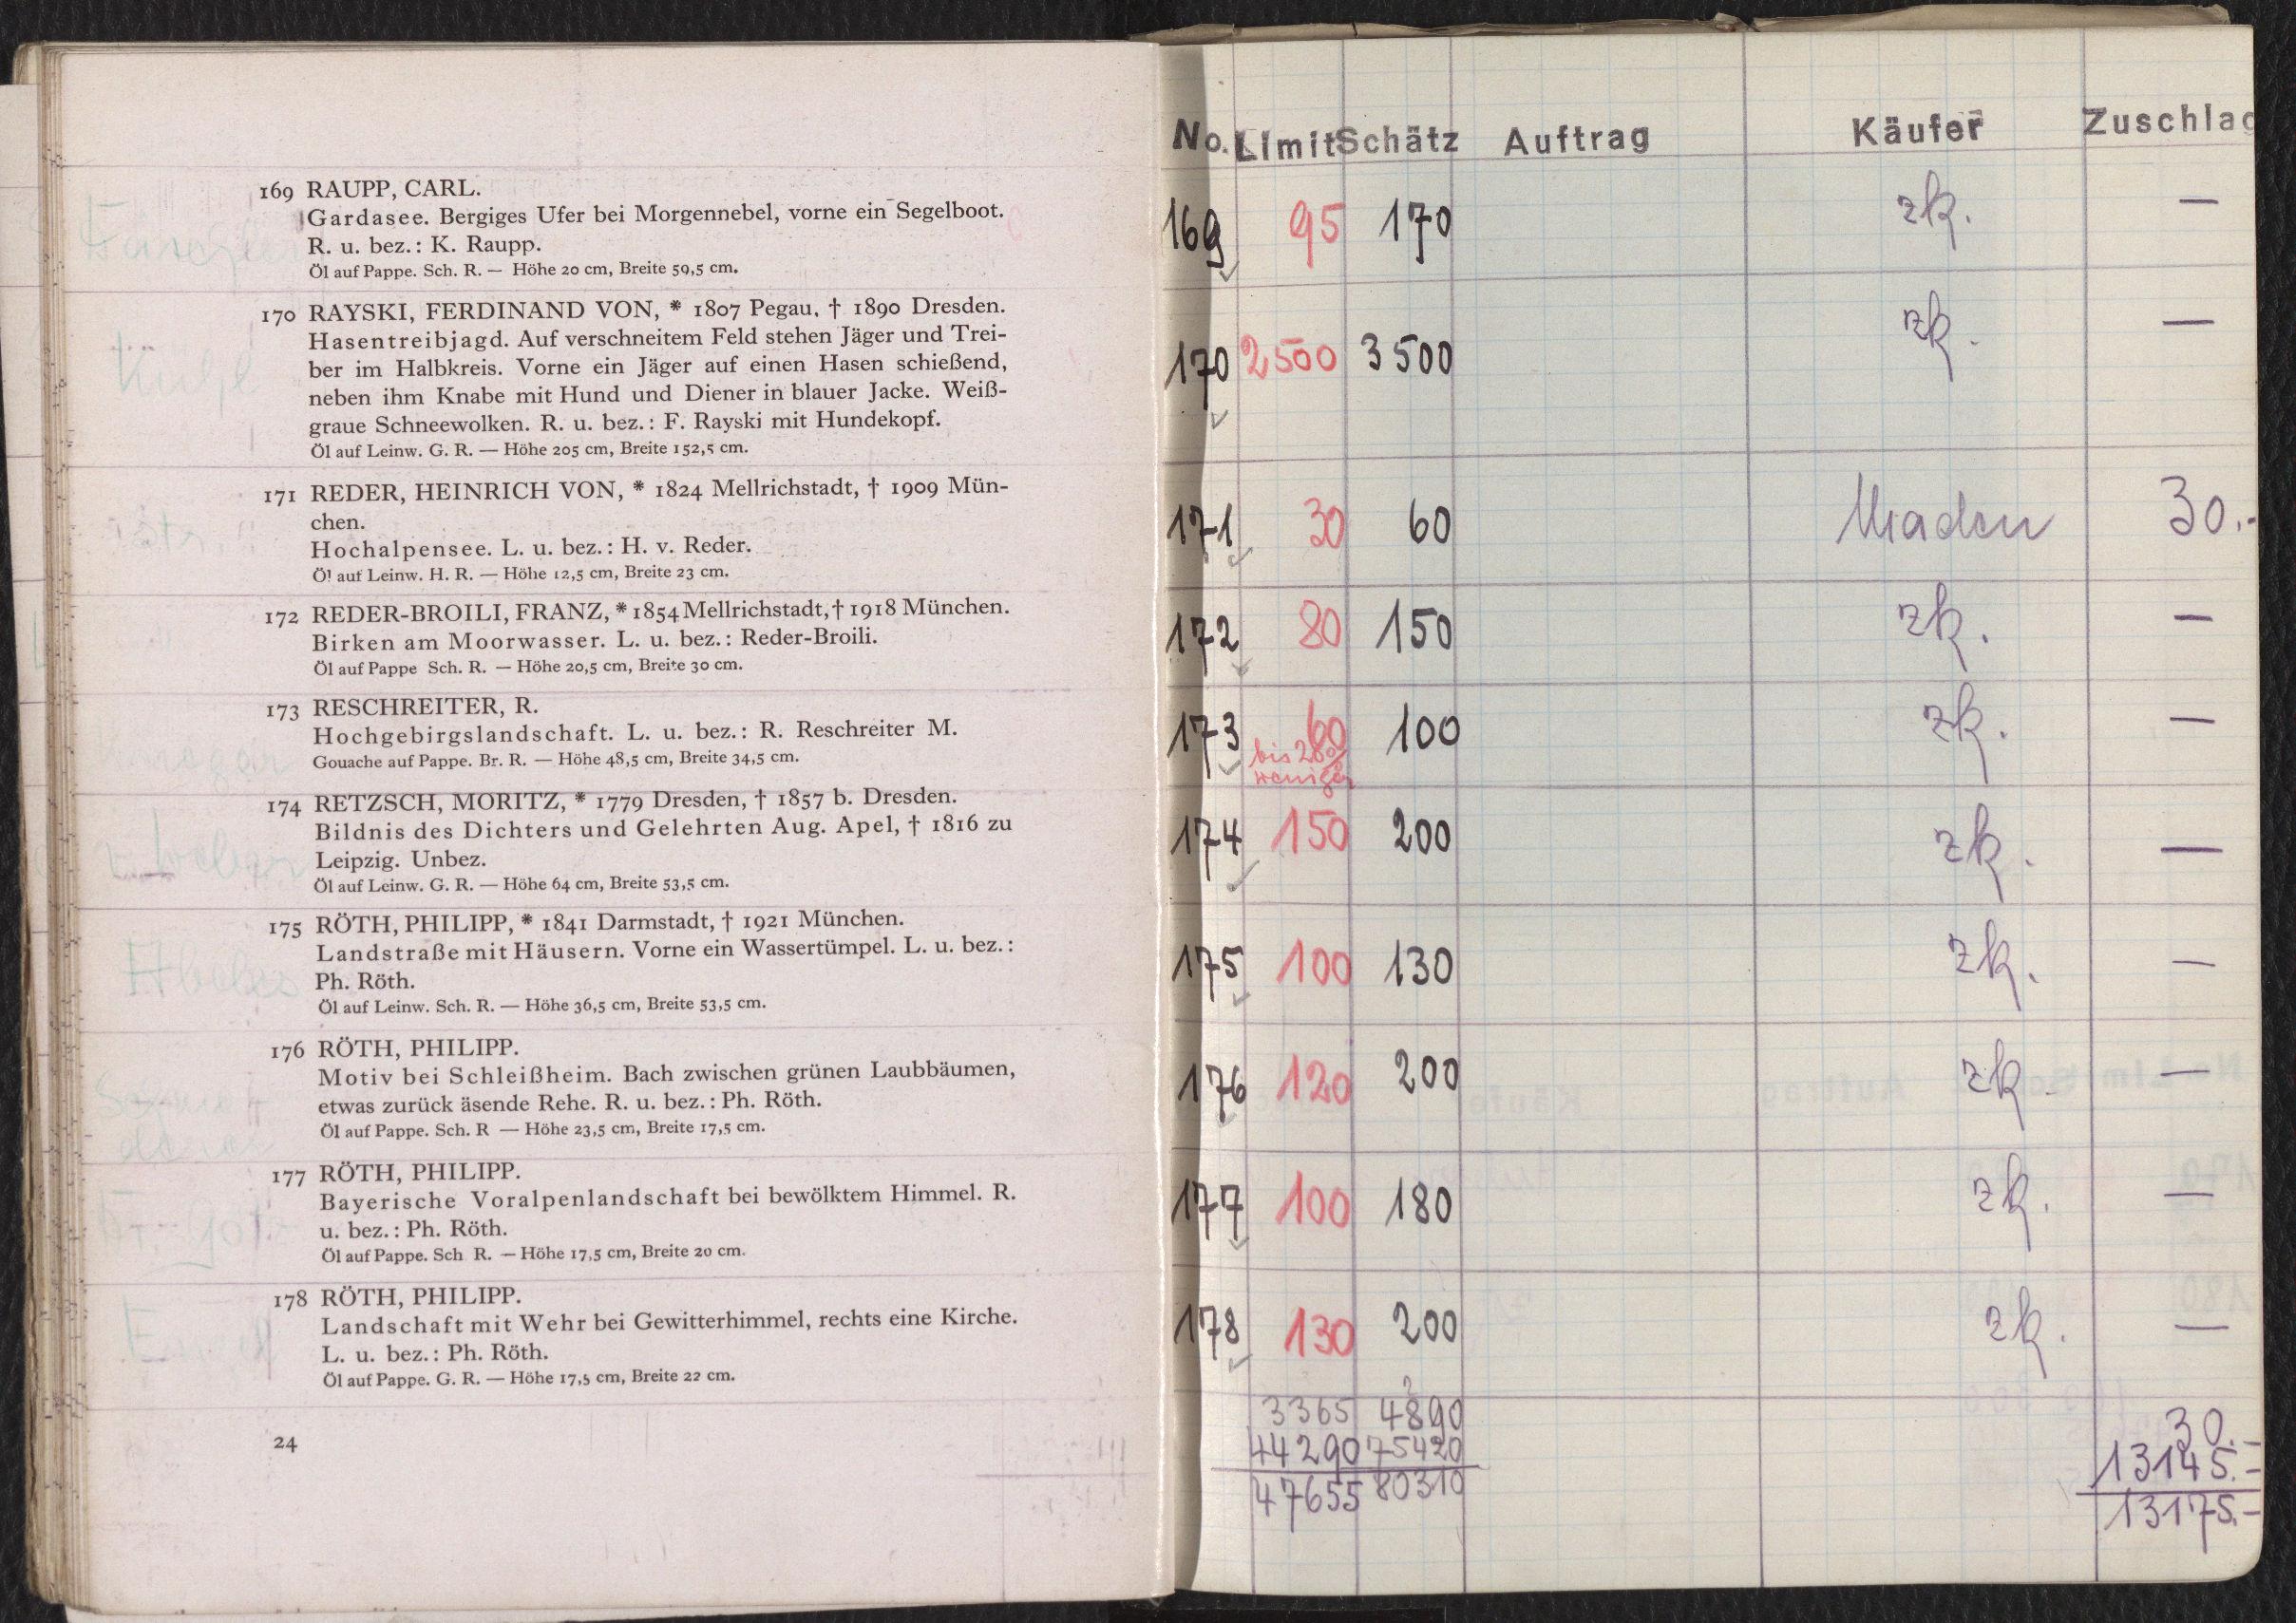 169 RAUPP, CARL.
Gardasee. Bergiges Ufer bei Morgennebel, vorne ein Segelboot.
R. u. bez.: K. Raupp.
Öl auf Pappe. Sch. R. — Höhe 20 cm, Breite 59,5 cm.
170 RAYSKI, FERDINAND VON, * 1807 Pegau, † 1890 Dresden.
Hasentreibjagd. Auf verschneitem Feld stehen Jäger und Trei-
ber im Halbkreis. Vorne ein Jäger auf einen Hasen schießend,
neben ihm Knabe mit Hund und Diener in blauer Jacke. Weiß-
graue Schneewolken. R. u. bez.: F. Rayski mit Hundekopf.
Öl auf Leinw. G. R. — Höhe 205 cm, Breite 152,5 cm.
171 REDER, HEINRICH VON, * 1824 Mellrichstadt, † 1909 Mün-
chen.
Hochalpensee. L. u. bez.: H. v. Reder.
Öl auf Leinw. H. R. — Höhe 12,5 cm, Breite 23 cm.
172 REDER-BROILI, FRANZ, * 1854 Mellrichstadt, † 1918 München.
Birken am Moorwasser. L. u. bez.: Reder-Broili.
Öl auf Pappe Sch. R. — Höhe 20,5 cm, Breite 30 cm.
173 RESCHREITER, R.
Hochgebirgslandschaft. L. u. bez.: R. Reschreiter M.
Gouache auf Pappe. Br. R. — Höhe 48,5 cm, Breite 34,5 cm.
174 RETZSCH, MORITZ, * 1779 Dresden, † 1857 b. Dresden.
Bildnis des Dichters und Gelehrten Aug. Apel, † 1816 zu
Leipzig. Unbez.
Öl auf Leinw. G. R. — Höhe 64 cm, Breite 53,5 cm.
175 RÖTH, PHILIPP, * 1841 Darmstadt, † 1921 München.
Landstraße mit Häusern. Vorne ein Wassertümpel. L. u. bez.:
Ph. Röth.
Öl auf Leinw. Sch. R. — Höhe 36,5 cm, Breite 53,5 cm.
176 RÖTH, PHILIPP.
Motiv bei Schleißheim. Bach zwischen grünen Laubbäumen,
etwas zurück äsende Rehe. R. u. bez.: Ph. Röth.
Öl auf Pappe. Sch. R — Höhe 23,5 cm, Breite 17,5 cm.
177 RÖTH, PHILIPP.
Bayerische Voralpenlandschaft bei bewölktem Himmel. R.
u. bez.: Ph. Röth.
Öl auf Pappe. Sch R. — Höhe 17,5 cm, Breite 20 cm.
178 RÖTH, PHILIPP.
Landschaft mit Wehr bei Gewitterhimmel, rechts eine Kirche.
L. u. bez.: Ph. Röth.
Öl auf Pappe. G. R. — Höhe 17,5 cm, Breite 22 cm.
24
No. Limit Schätz Auftrag Käufer Zuschlag
169 95 170 zk. —
170 2500 3500 zk. —
171 30 60 Maden 30.-
172 80 150 zk. —
173 60 100 zk. —
bis 28%
weniger
174 150 200 zk. —
175 100 130 zk. —
176 120 200 zk. —
177 100 180 zk. —
178 130 200 zk. —
3365 4890 30.-
44290 75420 13145.-
47655 80310 13175.-